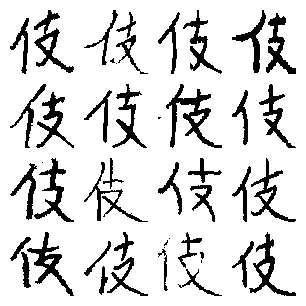 伎伎伎伎
伎伎伎伎
伎伎伎伎
伎伎伎伎